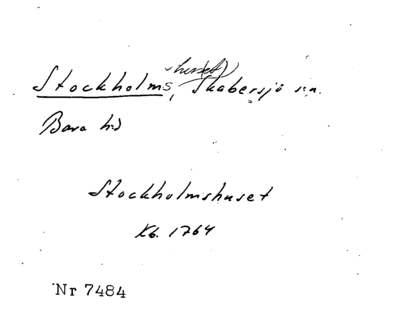 Stockholms(huset), Skabersjö sn.
Bara hd
Stockholmshuset
Kb. 1764
Nr 7484